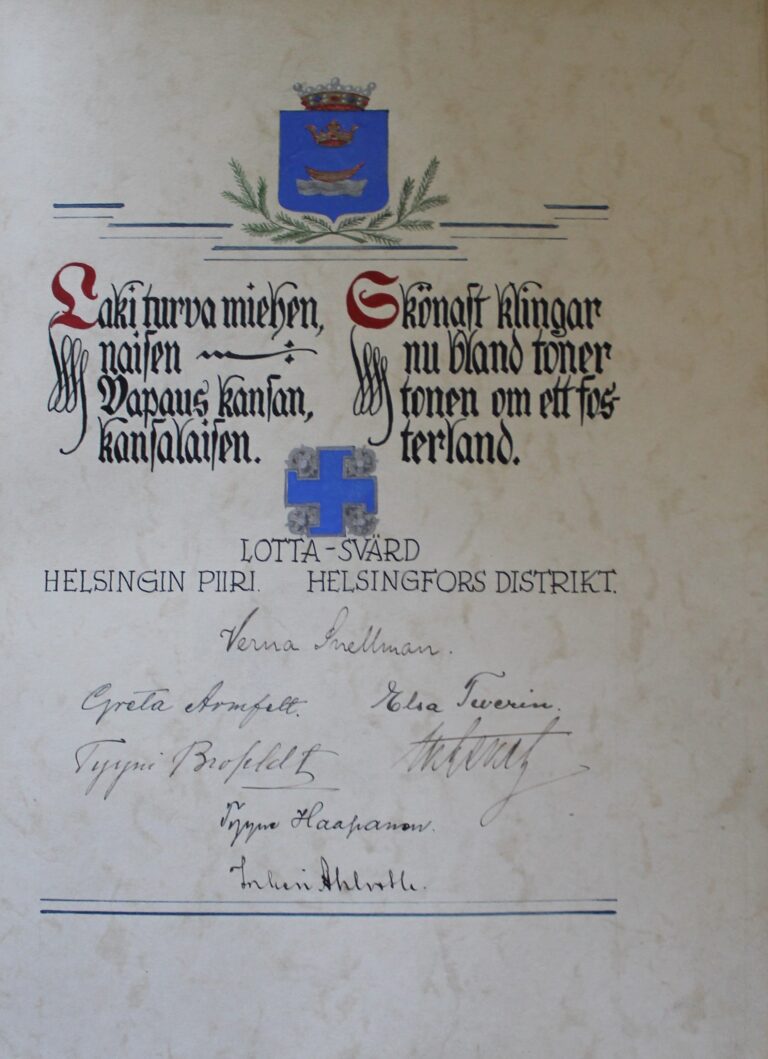 Laki turva miehen,
naisen
Vapaus kansan,
kansalaisen.
Skönast klingar
nu bland toner
tonen om ett fos-
terland.
LOTTA-SVÄRD
HELSINGIN PIIRI. HELSINGFORS DISTRIKT.
Verna Snellman.
Greta Armfelt. Elsa Twerin.
Tyyni Brofeldt
Tyyne Haapanen.